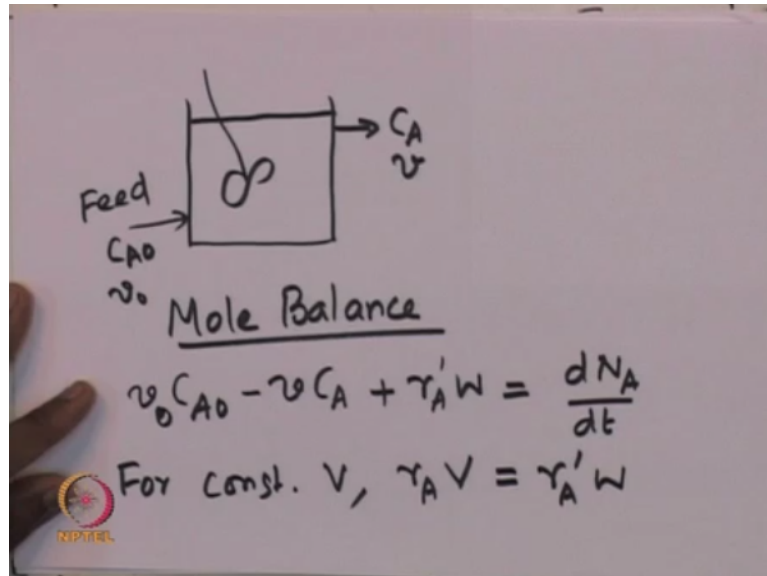 C_A
v
Feed
C_{A0}
v_0
Mole Balance
v_0 C_{A0} - v C_A + r_A' W = \frac{dN_A}{dt}
For const. V, r_A V = r_A' W
NPTEL